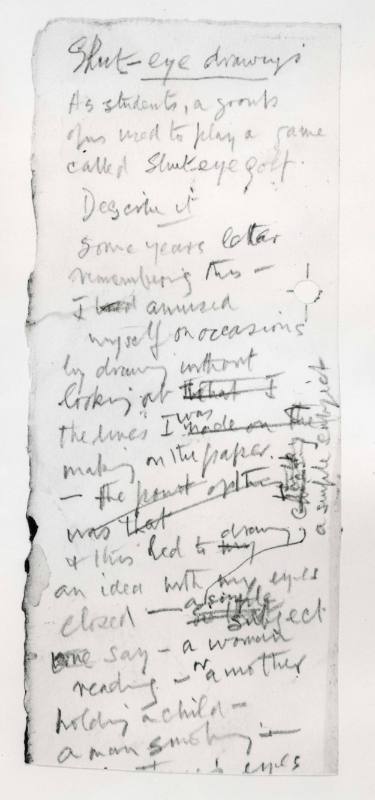 Shut-eye drawings
As students, a group
of us used to play a game
called Shut-eye golf.
Describe it
Some years later
remembering this —
I had amused
myself on occasions
by drawing without
looking at that I
the lines I was made on the
making on the paper.
— the point of the
was that
& this led to my drawing
an idea with my eyes
closed — a simple
subject
one say — a woman
reading — or a mother
holding a child —
a man smoking —
eyes
a simple subject